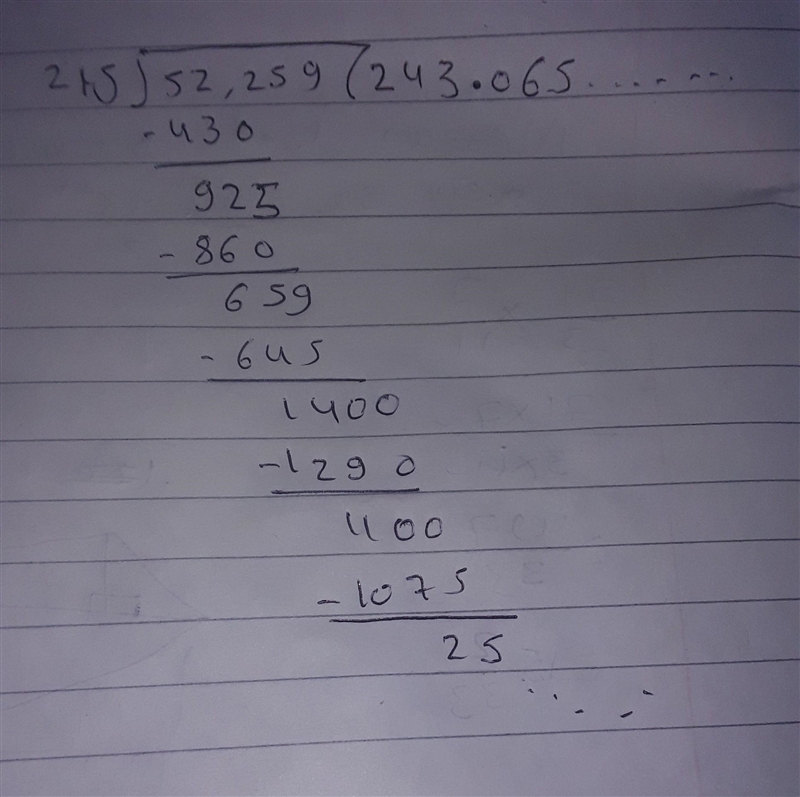 215)52,259(243.065.........
-430
925
-860
659
-645
1400
-1290
1100
-1075
25